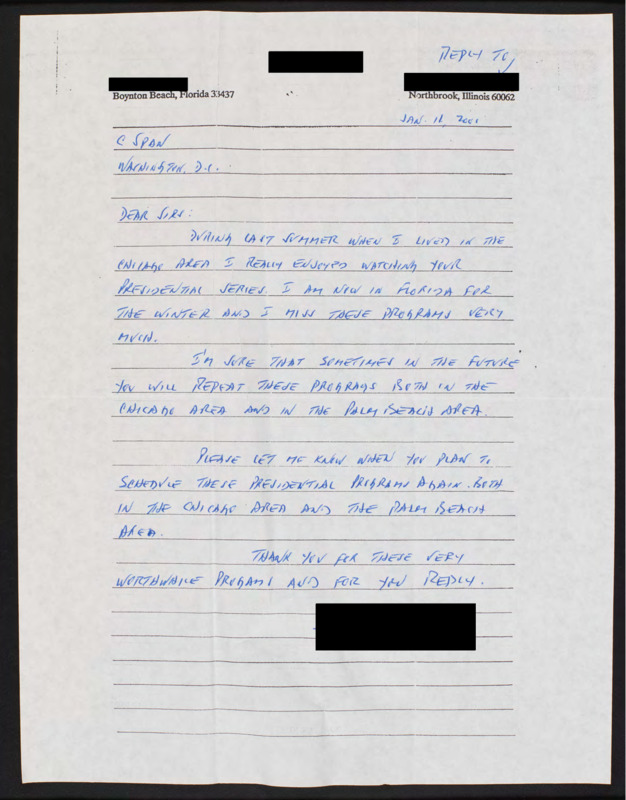 REPLY TO
Boynton Beach, Florida 33437
Northbrook, Illinois 60062
JAN. 11, 2001
C SPAN
WASHINGTON, D.C.
DEAR SIRS:
DURING LAST SUMMER WHEN I LIVED IN THE
CHICAGO AREA I REALLY ENJOYED WATCHING YOUR
PRESIDENTIAL SERIES. I AM NOW IN FLORIDA FOR
THE WINTER AND I MISS THESE PROGRAMS VERY
MUCH.
I'M SURE THAT SOMETIMES IN THE FUTURE
YOU WILL REPEAT THESE PROGRAMS BOTH IN THE
CHICAGO AREA AND IN THE PALM BEACH AREA.
PLEASE LET ME KNOW WHEN YOU PLAN TO
SCHEDULE THESE PRESIDENTIAL PROGRAMS AGAIN. BOTH
IN THE CHICAGO AREA AND THE PALM BEACH
AREA.
THANK YOU FOR THESE VERY
WORTHWHILE PROGAMS AND FOR YOU REPLY.